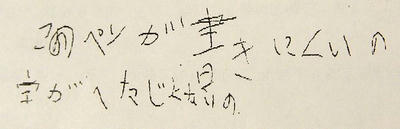 このペンが書きにくいの
字がへたじゃ